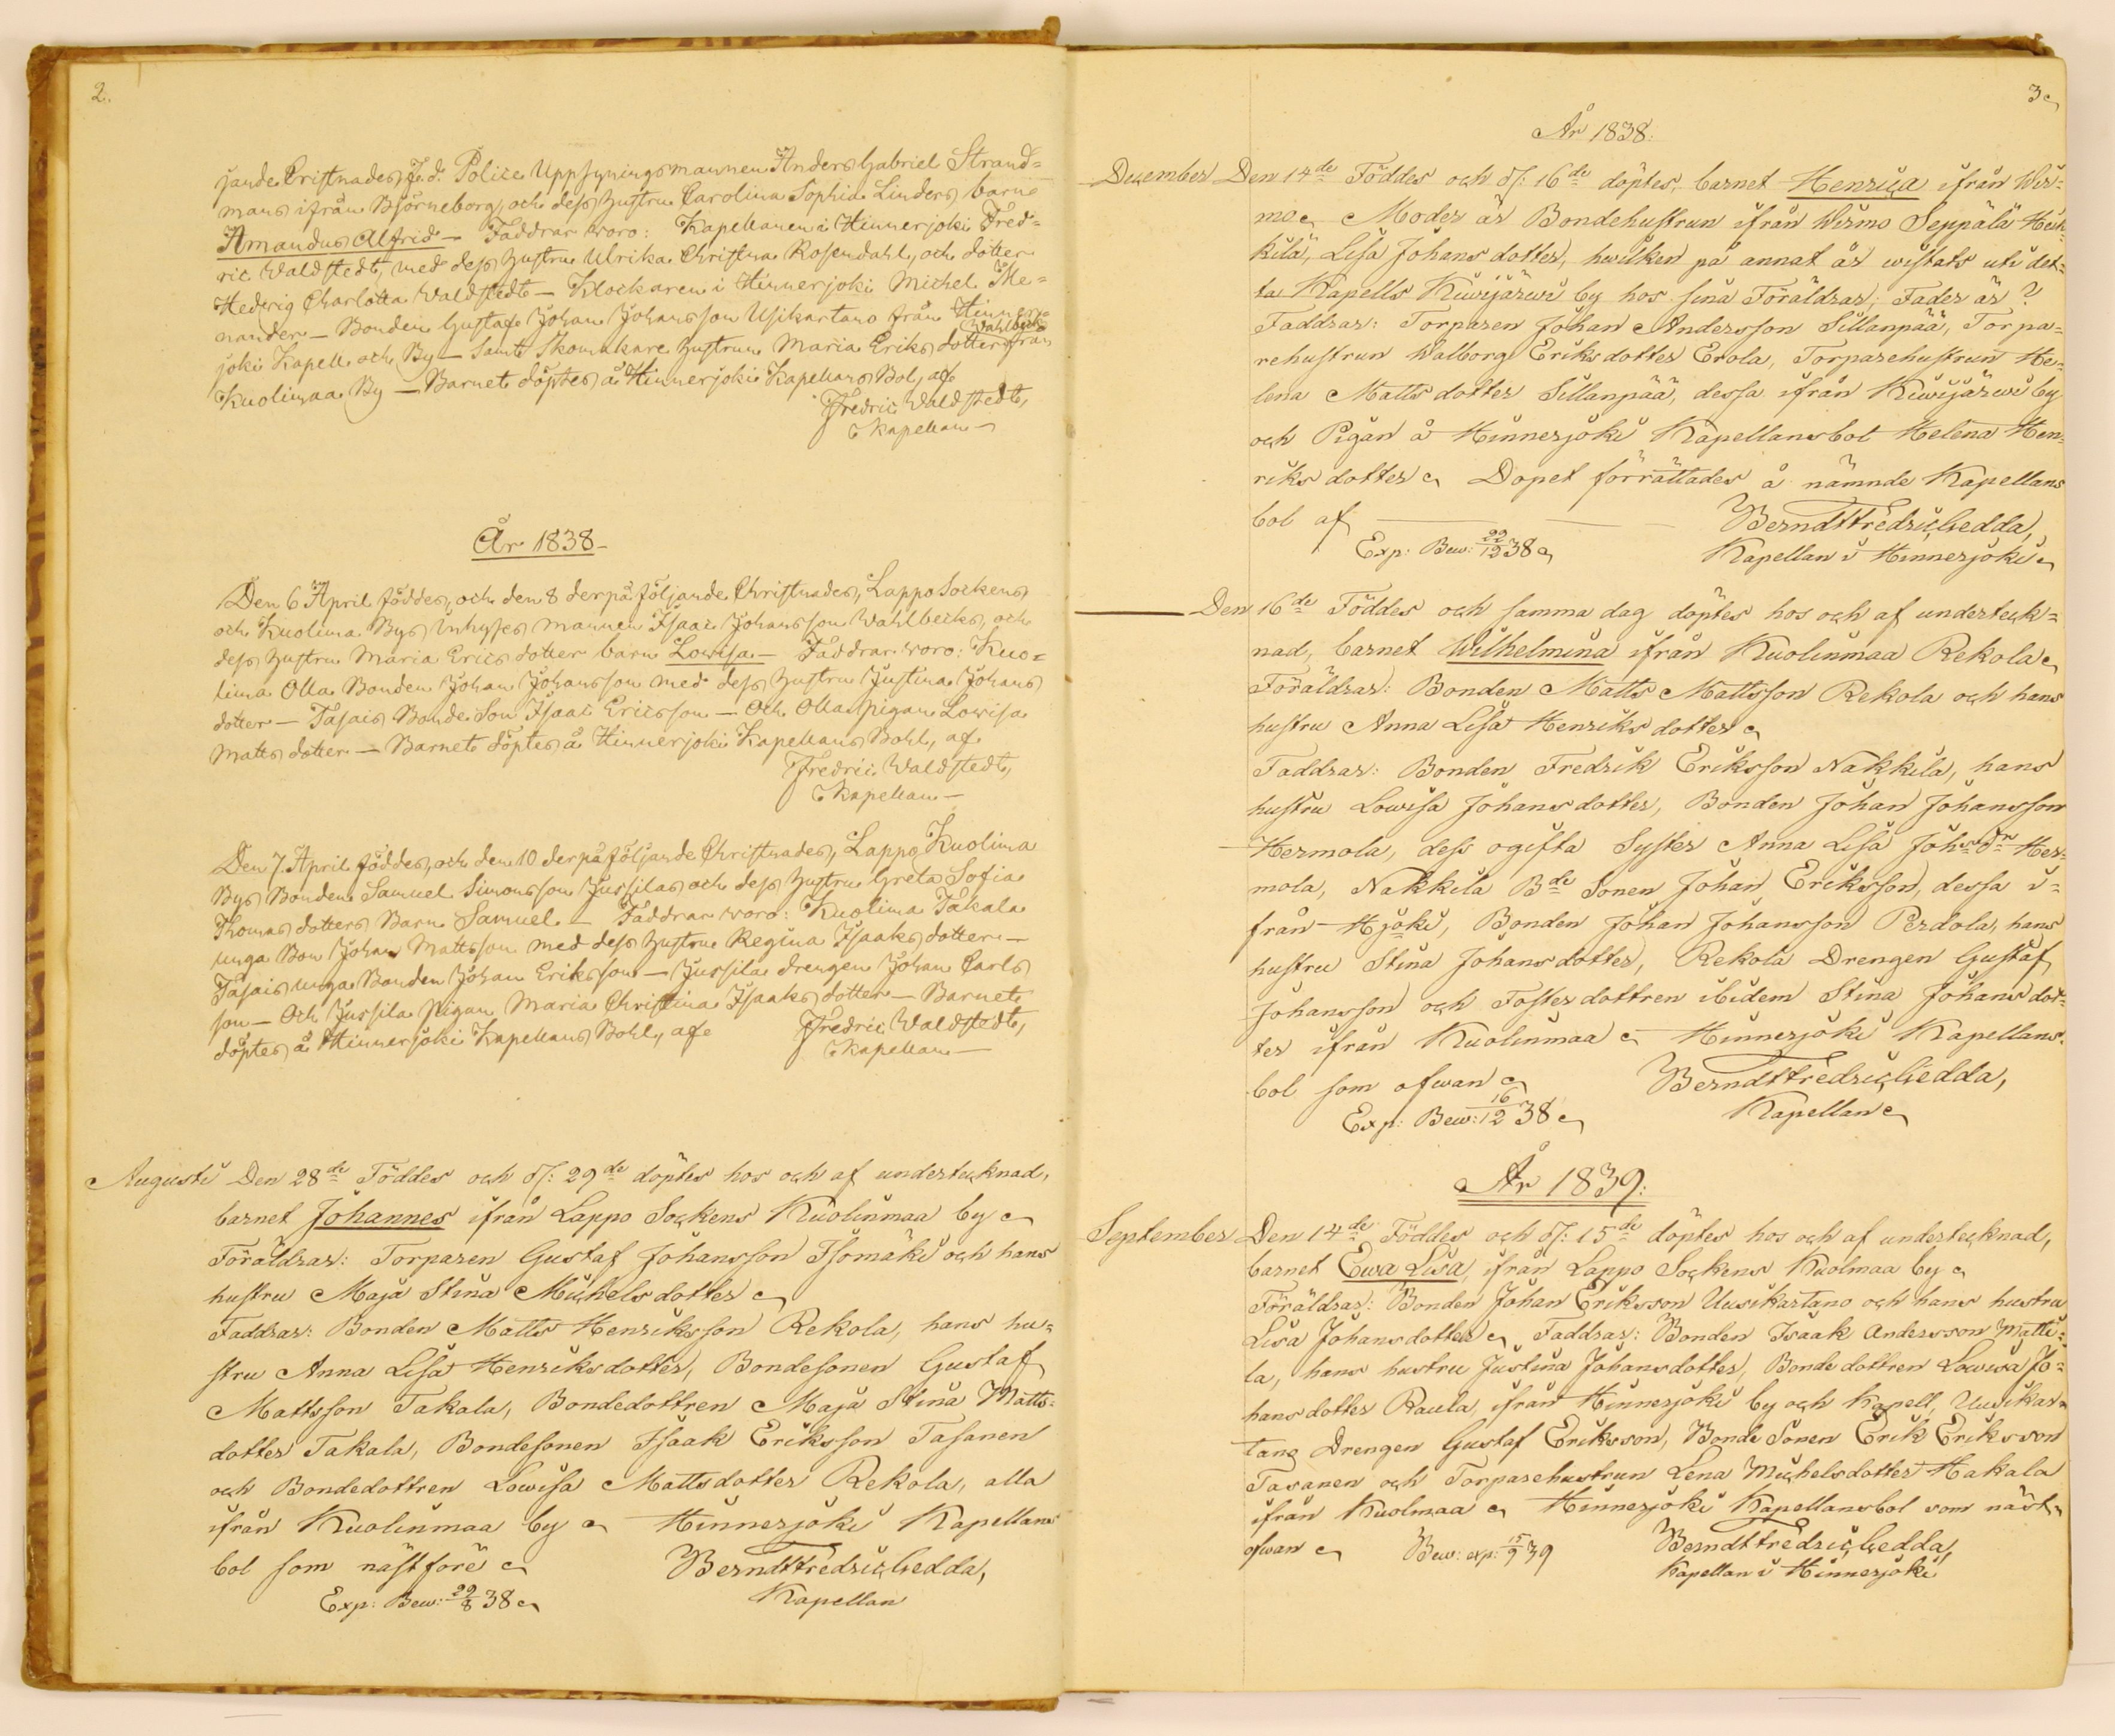 2.
jande Cristnades, F.d. Police Uppsyningsmannen Anders Gabriel Strand=
mans ifrån Björneborg, och dess hustru Carolina Sophia Linders barn
Amandus Alfrid — Faddrar woro: Kapellanen i Hinnerjoki Fred=
ric Waldstedt, med dess hustru Ulrika Christina Rosendahl, och dotter
Hedvig Charlotta Waldstedt — Klockaren i Hinnerjoki Michel The=
nander — Bonden Gustaf Johan Johansson Usikartano från Hinner=
joki Kapell och By — Samt Skomakare hustrun Maria Eriks dotter Wahlbeck från
Kuolimaa By — Barnet döptes å Hinnerjoki Kapellans Bol, af
Fredric Waldstedt,
Kapellan —
År 1838 —
Den 6 April föddes, och den 8 derpåföljande Christnades, Lappo Sockens
och Kuolima Bys Inhyses mannen Isaac Johansson Wahlbecks, och
dess hustru Maria Erics dotter barn Lowisa — Faddrar woro: Kuo=
lima Olla Bonden Johan Johansson med dess hustru Justina Johans
dotter — Tasais Bonde Son Isaac Ericsson — Och Olla pigan Lowisa
Matts dotter — Barnet döptes å Hinnerjoki Kapellans Bohl, af
Fredric Waldstedt,
Kapellan —
Den 7. April föddes, och den 10 derpåföljande Christnades, Lappo Kuolima
Bys Bonden Samuel Simonsson Jussilas och dess hustru Greta Sofia
Thomas dotters Barn Samuel — Faddrar woro: Kuolima Takala
unga Bon Johan Mattsson med dess hustru Regina Isaaks dotter —
Tasais unga Bonden Johan Eriksson — Jussila drengen Johan Carls
son — Och Jussila pigan Maria Christina Isaaks dotter — Barnet
döptes å Hinnerjoki Kapellans Bohl, af Fredric Waldstedt,
Kapellan —
Augusti Den 28de Föddes och d/: 29de döptes hos och af undertecknad,
barnet Johannes ifrån Lappo Sockens Kuolinmaa by
Föräldrar: Torparen Gustaf Johansson Isomäki och hans
hustru Maja Stina Michelsdotter
Faddrar: Bonden Matts Henriksson Rekola, hans hu=
stru Anna Lisa Henriksdotter, Bondesonen Gustaf
Mattsson Takala, Bondedottren Maja Stina Matts=
dotter Takala, Bondesonen Isaak Eriksson Tasanen
och Bondedottren Lowisa Mattsdotter Rekola, alla
ifrån Kuolinmaa by Hinnerjoki Kapellans
bol som näst före Berndt Fredric Gedda,
Exp: Bew: 29/8 38 Kapellan
3
År 1838.
December Den 14de Föddes och d/: 16de döptes, barnet Henrica ifrån Wir=
mo. Moder är Bondehustrun ifrån Wirmo Seppälä Heik=
kilä, Lisa Johansdotter, hwilken på annat år wistats uti det=
ta Kapells Kiwijärwi by hos sina Föräldrar; Fader är ?
Faddrar: Torparen Johan Andersson Sillanpää, Torpa=
rehustrun Walborg Eriksdotter Erola, Torparehustrun He=
lena Mattsdotter Sillanpää, dessa ifrån Kiwijärwi by
och Pigan å Hinnerjoki Kapellansbol Helena Hen=
riksdotter Dopet förrättades å nämnde Kapellans
bol af — Berndt Fredric Gedda,
Exp: Bew: 22/12 38 Kapellan i Hinnerjoki
— Den 16de Föddes och samma dag döptes hos och af underteck=
nad, barnet Wilhelmina ifrån Kuolinmaa Rekola
Föräldrar: Bonden Matts Mattsson Rekola och hans
hustru Anna Lisa Henriksdotter
Faddrar: Bonden Fredrik Eriksson Nakkila, hans
hustru Lowisa Johansdotter, Bonden Johan Johansson
Hermola, dess ogifta Syster Anna Lisa Johns Dr Her=
mola, Nakkila Bde Sonen Johan Eriksson, dessa i=
från Hjoki, Bonden Johan Johansson Perdola, hans
hustru Stina Johansdotter, Rekola Drengen Gustaf
Johansson och Fosterdottren ibidem Stina Johansdot=
ter ifrån Kuolinmaa Hinnerjoki Kapellans=
bol som ofwan Berndt Fredric Gedda,
Exp: Bew: 16/12 38 Kapellan
År 1839:
September Den 14de Föddes och d/: 15de döptes hos och af undertecknad,
barnet Ewa Lisa, ifrån Lappo Sockens Kuolmaa by
Föräldrar: Bonden Johan Eriksson Uusikartano och hans hustru
Lisa Johansdotter Faddrar: Bonden Isaak Andersson Matti=
la, hans hustru Justina Johansdotter, Bondedottren Lowisa Jo=
hansdotter Raula, ifrån Hinnerjoki by och Kapell, Uusikar=
tano Drengen Gustaf Eriksson, Bonde Sonen Erik Eriksson
Tasanen och Torparehustrun Lena Michelsdotter Hakala
ifrån Kuolmaa Hinnerjoki Kapellansbol som näst
ofwan Bew: exp: 15/9 39 Berndt Fredric Gedda,
Kapellan i Hinnerjoki